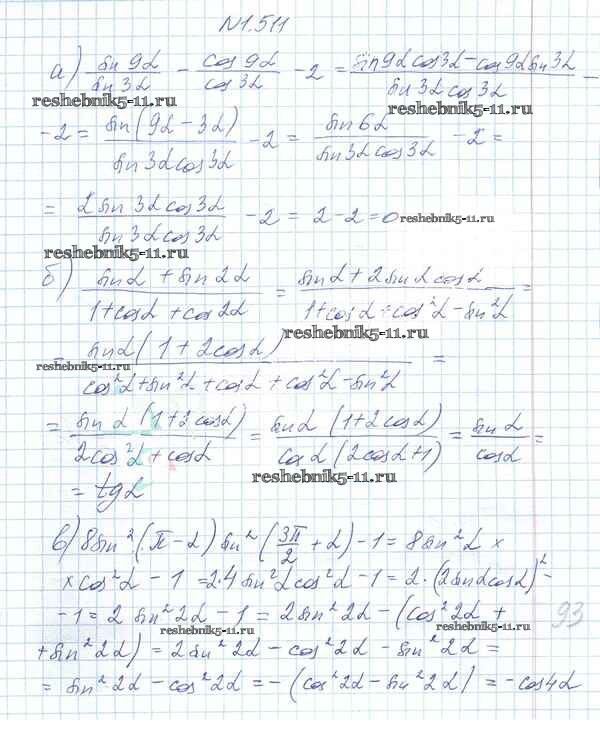 N1.511
а) sin 9α / sin 3α − cos 9α / cos 3α − 2 = (sin 9α cos 3α − cos 9α sin 3α) / (sin 3α cos 3α) −
reshebnik5-11.ru reshebnik5-11.ru
− 2 = sin(9α − 3α) / (sin 3α cos 3α) − 2 = sin 6α / (sin 3α cos 3α) − 2 =
= 2 sin 3α cos 3α / (sin 3α cos 3α) − 2 = 2 − 2 = 0 reshebnik5-11.ru
reshebnik5-11.ru
б) (sin α + sin 2α) / (1 + cos α + cos 2α) = (sin α + 2 sin α cos α) / (1 + cos α + cos²α − sin²α) =
reshebnik5-11.ru
= sin α (1 + 2cos α) / (cos²α + sin²α + cos α + cos²α − sin²α) =
reshebnik5-11.ru
= sin α (1 + 2cos α) / (2cos²α + cos α) = sin α (1 + 2cos α) / (cos α (2cos α + 1)) = sin α / cos α =
reshebnik5-11.ru
= tg α
в) 8 sin²(π − α) sin²(3π/2 + α) − 1 = 8 sin²α ×
× cos²α − 1 = 2·4 sin²α cos²α − 1 = 2·(2 sin α cos α)² −
reshebnik5-11.ru
− 1 = 2 sin²2α − 1 = 2 sin²2α − (cos²2α +
reshebnik5-11.ru
+ sin²2α) = 2 sin²2α − cos²2α − sin²2α =
= sin²2α − cos²2α = −(cos²2α − sin²2α) = −cos 4α
93